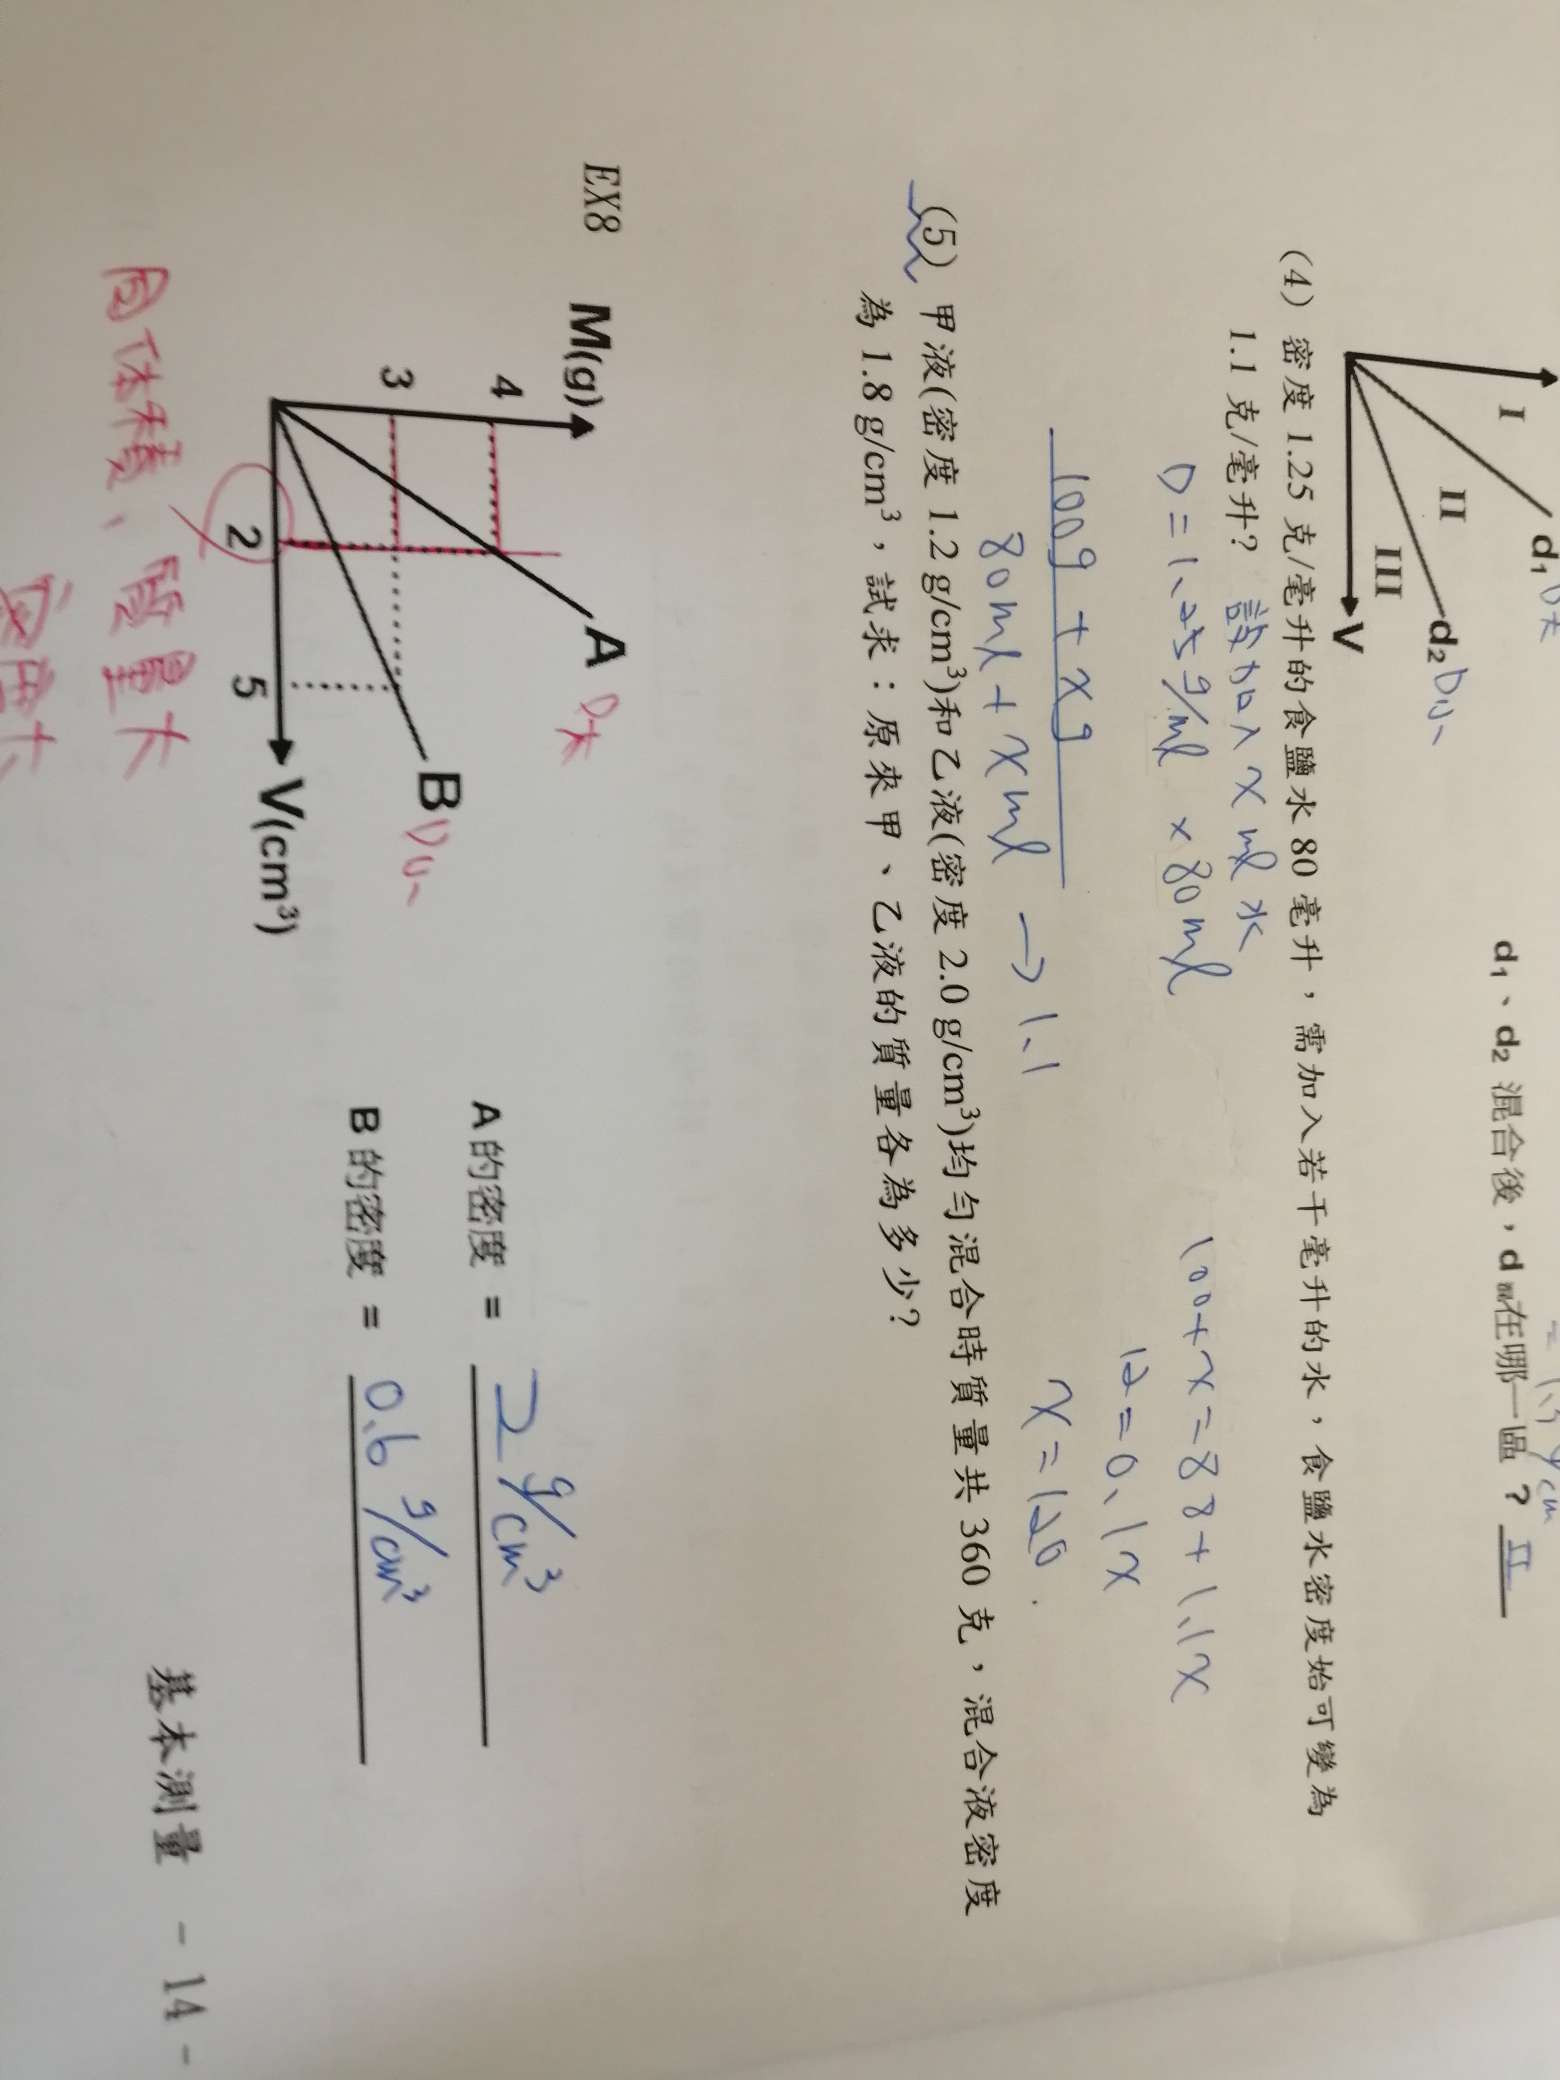 I
d₁ D大
II
d₂ D小
III
V
d₁、d₂ 混合後，d混在哪一區？ II
(4) 密度 1.25 克/毫升的食鹽水 80 毫升，需加入若干毫升的水，食鹽水密度始可變為
1.1 克/毫升？ 設加入 x ml 水
D = 1.25 g/ml × 80 ml
100 + x = 88 + 1.1x
12 = 0.1x
100g + xg
80ml + xml → 1.1
x = 120.
(5) 甲液(密度 1.2 g/cm³)和乙液(密度 2.0 g/cm³)均勻混合時質量共 360 克，混合液密度
為 1.8 g/cm³，試求：原來甲、乙液的質量各為多少？
EX8
M(g)
A D大
4
3
B D小
2
5
V(cm³)
A 的密度 = 2 g/cm³
B 的密度 = 0.6 g/cm³
同体積，質量大
密度大
基本測量 - 14 -